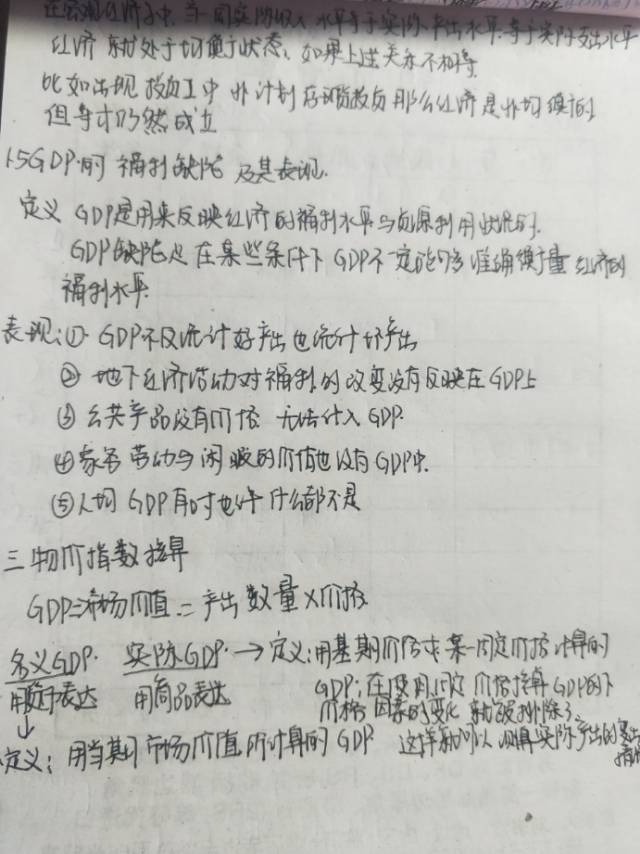 在宏观经济中,当一国实际收入水平等于实际产出水平,等于实际支出水平
经济就处于均衡状态、如果上述关系不相等
比如出现投资工中非计划存货投资那么经济是非均衡的
但等才仍然成立
1.5GDP的福利缺陷及其表现.
定义 GDP是用来反映经济的福利水平与资源利用状况的.
GDP缺陷是在某些条件下GDP不一定能够准确衡量经济的
福利水平.
表现:① GDP不仅统计好产出也统计坏产出
② 地下经济活动对福利的改变没有反映在GDP上
③ 公共产品没有价格 无法计入GDP.
④家务劳动与闲暇的价值也没有GDP中.
⑤人均GDP有时也许什么都不是
三 物价指数核算
GDP=市场价值=产出数量×价格
名义GDP. 实际GDP. → 定义:用基期价格或某一固定价格计算的
用货币表达 用商品表达 GDP;在使用固定价格核算GDP的下
价格因素的变化就被排除了.
↓
定义:用当期市场价值所计算的GDP 这样就可以测算实际产出的变动
情况